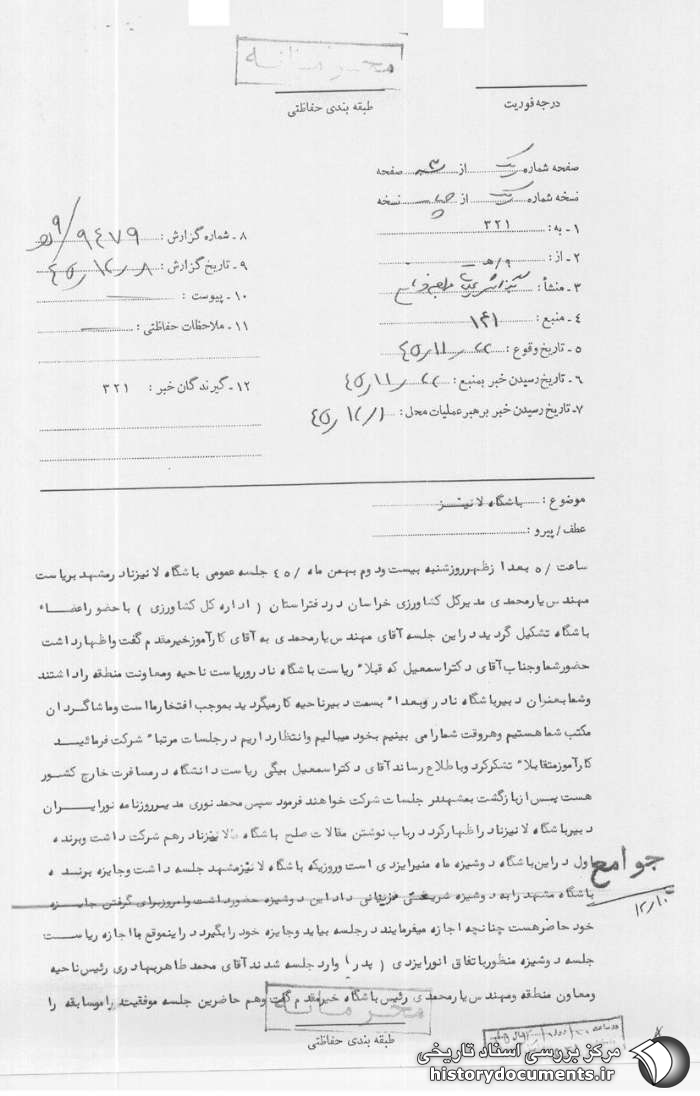 محرمانه
طبقه بندی حفاظتی
درجه فوریت
صفحه شماره یک از سه صفحه
نسخه شماره یک از چهار نسخه
۱ - به : ۳۲۱
۲ - از : ۹/ه
۳ - منشأ :
۴ - منبع : ۱۴۱
۵ - تاریخ وقوع : ۴۵/۱۱/۲۲
۶ - تاریخ رسیدن خبر بمنبع : ۴۵/۱۱/۲۲
۷ - تاریخ رسیدن خبر برهبر عملیات محل : ۴۵/۱۲/۱
۸ - شماره گزارش : ۹۴۷۹/۹ه
۹ - تاریخ گزارش : ۴۵/۱۲/۸
۱۰ - پیوست :
۱۱ - ملاحظات حفاظتی :
۱۲ - گیرندگان خبر : ۳۲۱
موضوع : باشگاه لاینز
عطف / پیرو :
ساعت ۵/ بعد از ظهر روز شنبه بیست و دوم بهمن ماه ۴۵/ جلسه عمومی باشگاه لاینز نادر مشهد بریاست
مهندس یارمحمدی مدیرکل کشاورزی خراسان در دفتر استان ( اداره کل کشاورزی ) با حضور اعضاء
باشگاه تشکیل گردید در این جلسه آقای مهندس یارمحمدی به آقای کارآموز خیرمقدم گفت و اظهار داشت
حضور شما و جناب آقای دکتر اسمعیل که قبلا" ریاست باشگاه نادر و ریاست ناحیه و معاونت منطقه را داشتند
و شما بعنوان دبیر باشگاه نادر و بعدا" بسمت دبیر ناحیه کار میگردید بموجب افتخار ما است و ما شاگردان
مکتب شما هستیم و هر وقت شما را می بینیم بخود میبالیم و انتظار داریم در جلسات مرتبا" شرکت فرمائید
کارآموز متقابلا" تشکر کرد و باطلاع رساند آقای دکتر اسمعیل بیگی ریاست دانشگاه در مسافرت خارج کشور
هست پس از بازگشت بمشهد در جلسات شرکت خواهند فرمود سپس محمد نوری مدیر روزنامه نور ایران
دبیر باشگاه لاینز نادر اظهار کرد در باب نوشتن مقالات صلح باشگاه لاینز نادر هم شرکت داشت و برنده
اول در این باشگاه دوشیزه ماه منیر ایزدی است و روزیکه باشگاه لاینز مشهد جلسه داشت و جایزه برنده
باشگاه مشهد را به دوشیزه داد این دوشیزه حضور داشت و امروز برای گرفتن جایزه
خود حاضر هست چنانچه اجازه میفرمایند در جلسه بیاید و جایزه خود را بگیرد در اینموقع با اجازه ریاست
جلسه دوشیزه منظور باتفاق انور ایزدی ( پدر ) وارد جلسه شدند آقای محمد طاهر بهادری رئیس ناحیه
و معاون منطقه و مهندس یارمحمدی رئیس باشگاه خیرمقدم گفت و هم حاضرین جلسه موفقیتند را مسابقه را
جوامع
۱۲/۱۰
محرمانه
طبقه بندی حفاظتی
مرکز بررسی اسناد تاریخی
historydocuments.ir